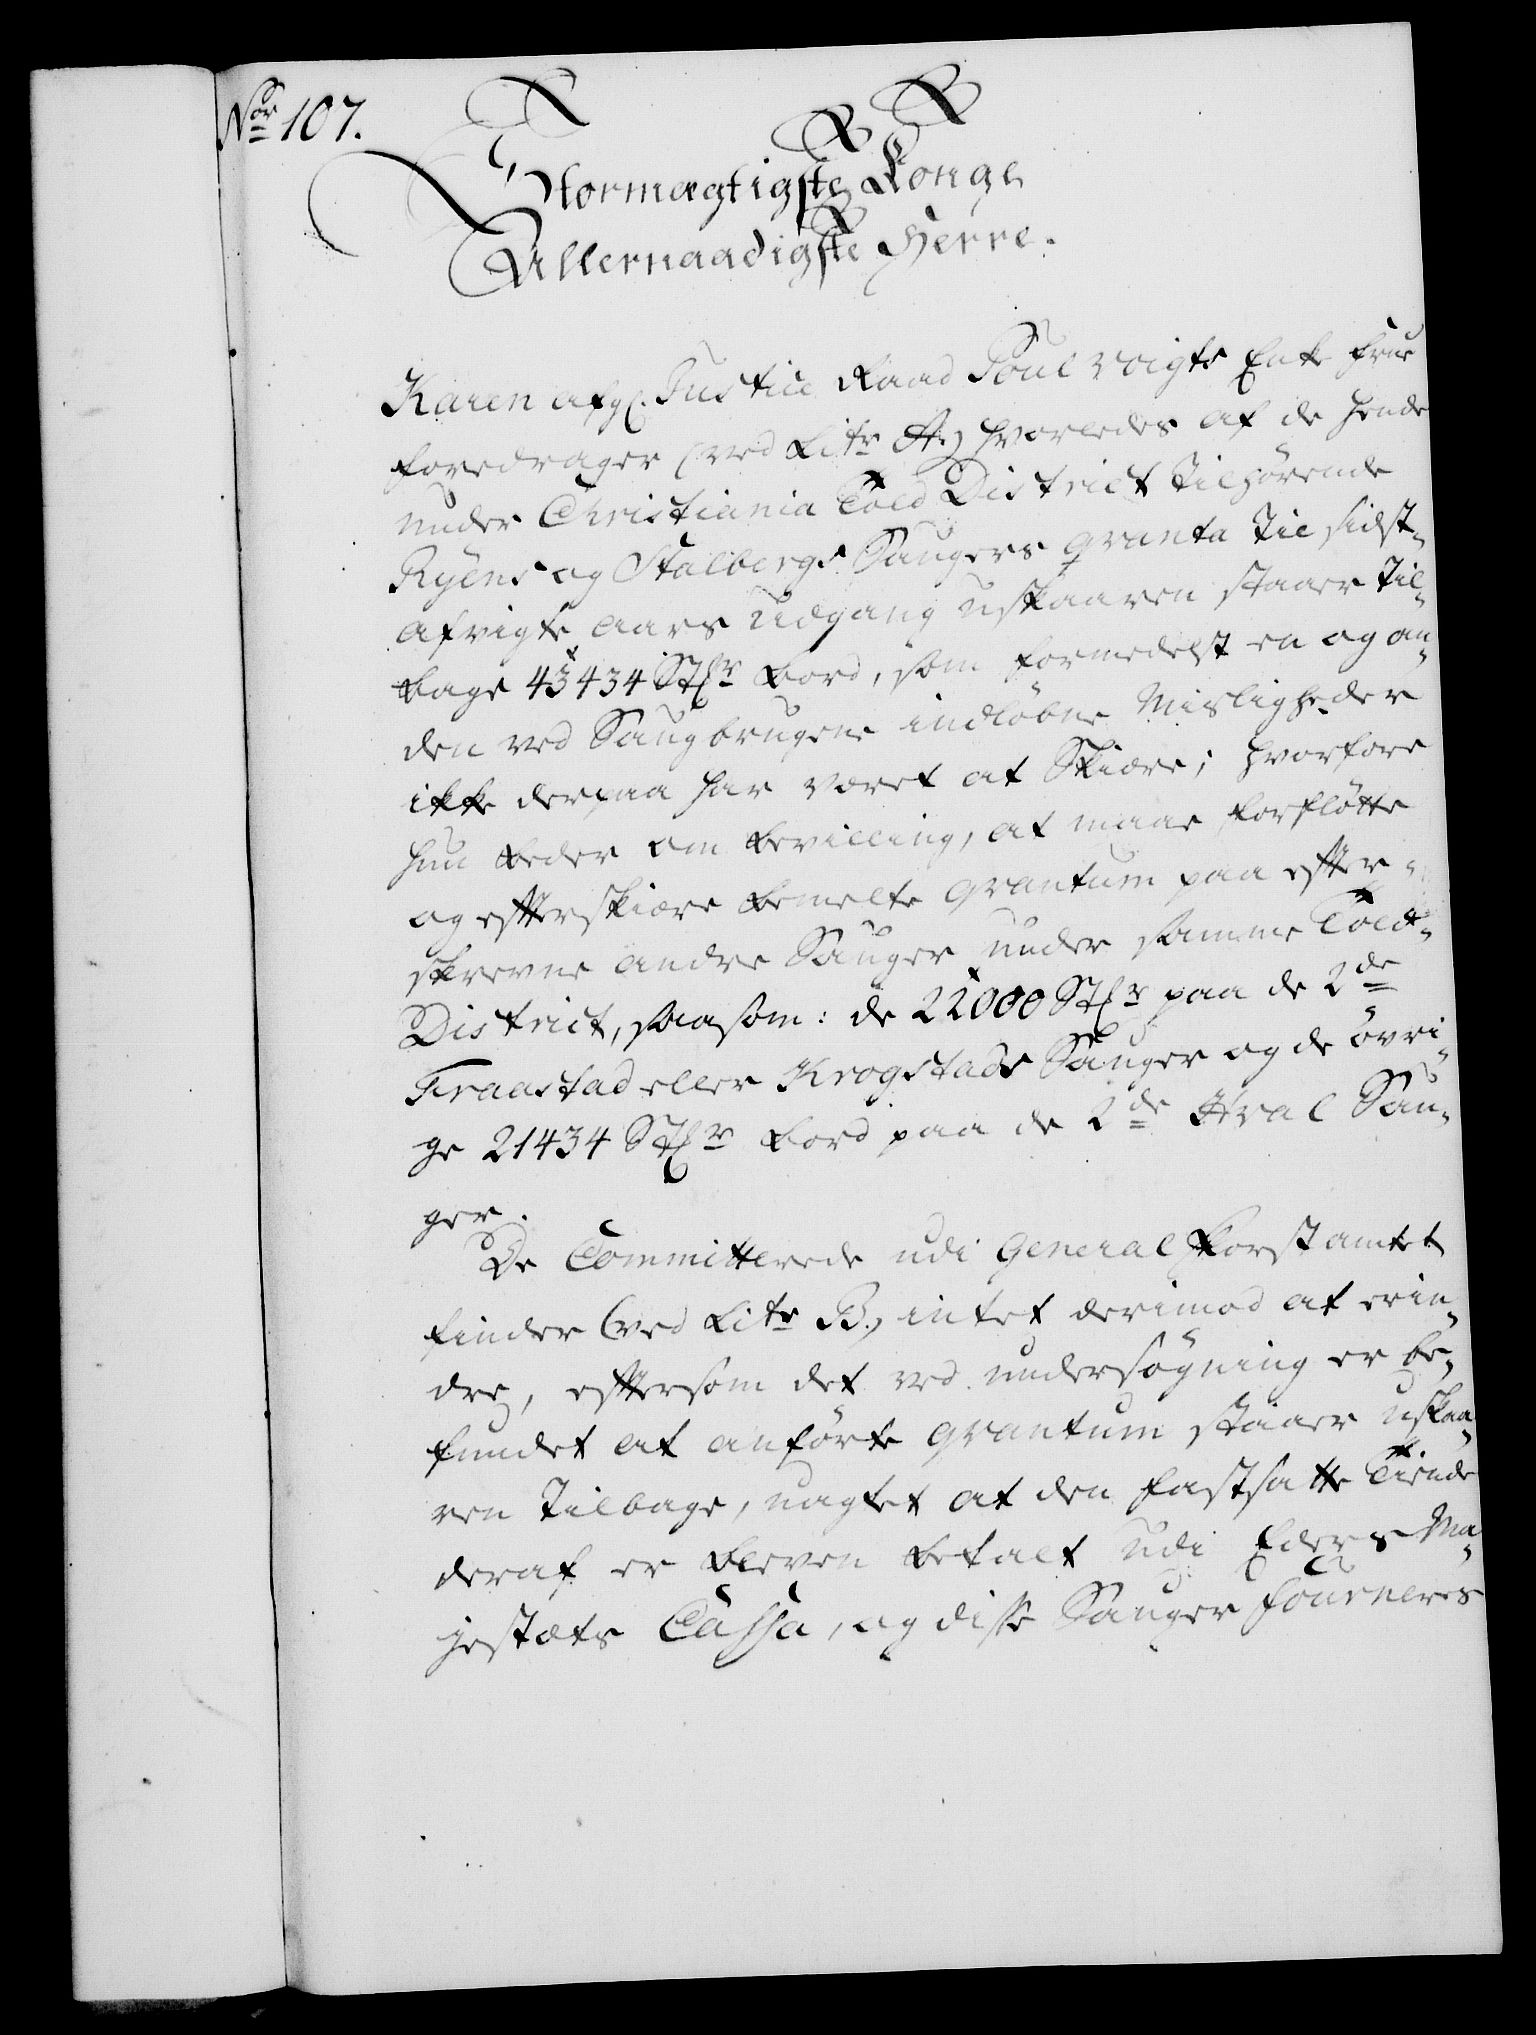 Nor 107.
Stormægtigste Konge
Allernaadigste Herre.
Karen afg. Justice Raad Poul Voigts Enke Frue
foredrager (ved Litr A.) hvorledes af de hende
under Christiania Told District tilhørende
Ryens og Stalbergs Saugers qvanta til sidst-
afvigte aars udgang uskaaren staaer til-
bage 43434 Stkr bord, som formedelst en og an-
den ved Saugbrugene indløbne Misligheder
ikke derpaa har været at Skiære; hvorfore
hun beder om bevilling, at maae forfløtte
og efterskiære bemelte qvantum paa efter-
skrevne andre Sauger under samme Told-
District, saasom: de 22000 Stkr paa de 2de
Fraastad eller Krogstads Sauger og de øvri-
ge 21434 Stkr bord paa de 2de Hval Sau-
ger.
De Committerede udi General Forstamtet
finder (ved Litr B.) intet derimod at erin-
dre, eftersom det ved undersøgning er be-
fundet at anførte qvantum staaer uskaa-
ren tilbage, uagtet at den fastsatte Tiende
deraf er bleven betalt udi Eders Ma-
jestæts Cassa, og disse Sauger fourneres